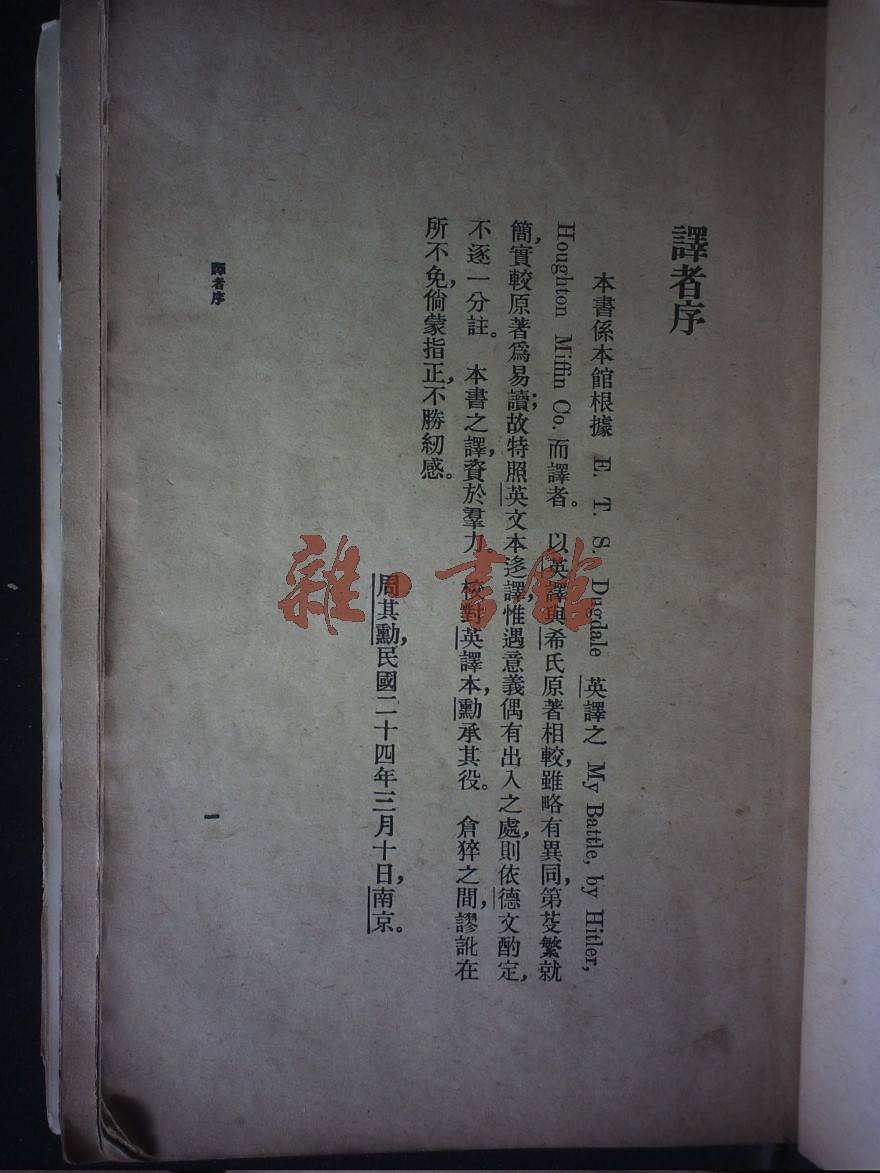 譯者序
本書係本館根據 E. T. S. Dugdale 英譯之 My Battle, by Hitler,
Houghton Miffin Co. 而譯者。以英譯與希氏原著相較,雖略有異同,第芟繁就
簡,實較原著爲易讀;故特照英文本迻譯,惟遇意義偶有出入之處,則依德文酌定,
不逐一分註。本書之譯,資於羣力。校對英譯本,勳承其役。倉猝之間,謬訛在
所不免,倘蒙指正,不勝紉感。
周其勳,民國二十四年三月十日,南京。
譯者序
一
雜·書館